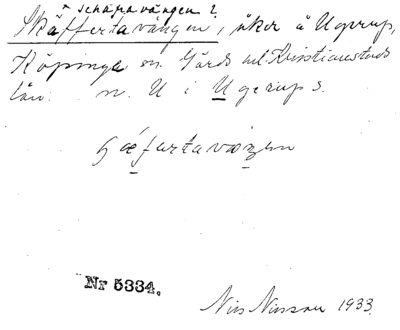 schäpavängen?
Skäffertavången, åker å Ugerup,
Köpinge sn. Gärds hd. Kristianstads
län. n. U i Ugerups.
hæfartavæxen
Nr 5334.
Nils Nilsson 1933.